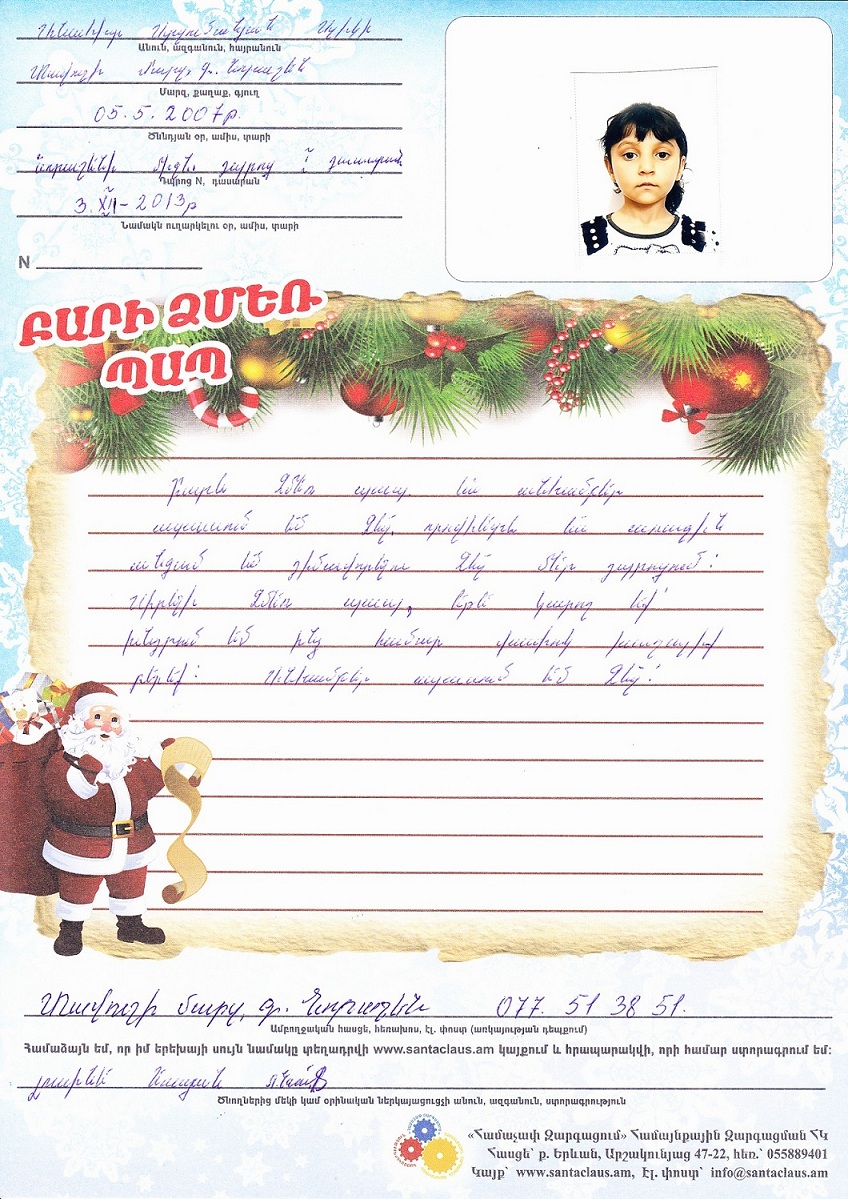 Տավուշի մարզ, գ. Նորաշեն
Անուն, ազգանուն, հայրանուն
Մարզ, քաղաք, գյուղ
05. 5. 2007թ.
Ծննդյան օր, ամիս, տարի
Նորաշենի միջն. դպրոց
Դպրոց N, դասարան
3. XII - 2013թ
Նամակն ուղարկելու օր, ամիս, տարի
N
ԲԱՐԻ ՁՄԵՌ
ՊԱՊ
Բարև Ձմեռ պապ. ես անհամբեր
սպասում եմ Ձեզ, որովհետև ես առաջին
անգամ եմ դիմավորելու Ձեզ մեր դպրոցում:
Սիրելի Ձմեռ պապ, եթե կարող եք՝
խնդրում եմ ինձ համար փափուկ խաղալիք
բերեք: Անհամբեր սպասում եմ Ձեզ:
Տավուշի մարզ, գ. Նորաշեն 077. 51 38 51.
Ամբողջական հասցե, հեռախոս, էլ. փոստ (առկայության դեպքում)
Համաձայն եմ, որ իմ երեխայի սույն նամակը տեղադրվի www.santaclaus.am կայքում և հրապարակվի, որի համար ստորագրում եմ:
Ծնողներից մեկի կամ օրինական ներկայացուցչի անուն, ազգանուն, ստորագրություն
«Համաչափ Զարգացում» Համայնքային Զարգացման ՀԿ
Հասցե՝ ք. Երևան, Արշակունյաց 47-22, հեռ.՝ 055889401
Կայք՝ www.santaclaus.am, Էլ. փոստ՝ info@santaclaus.am